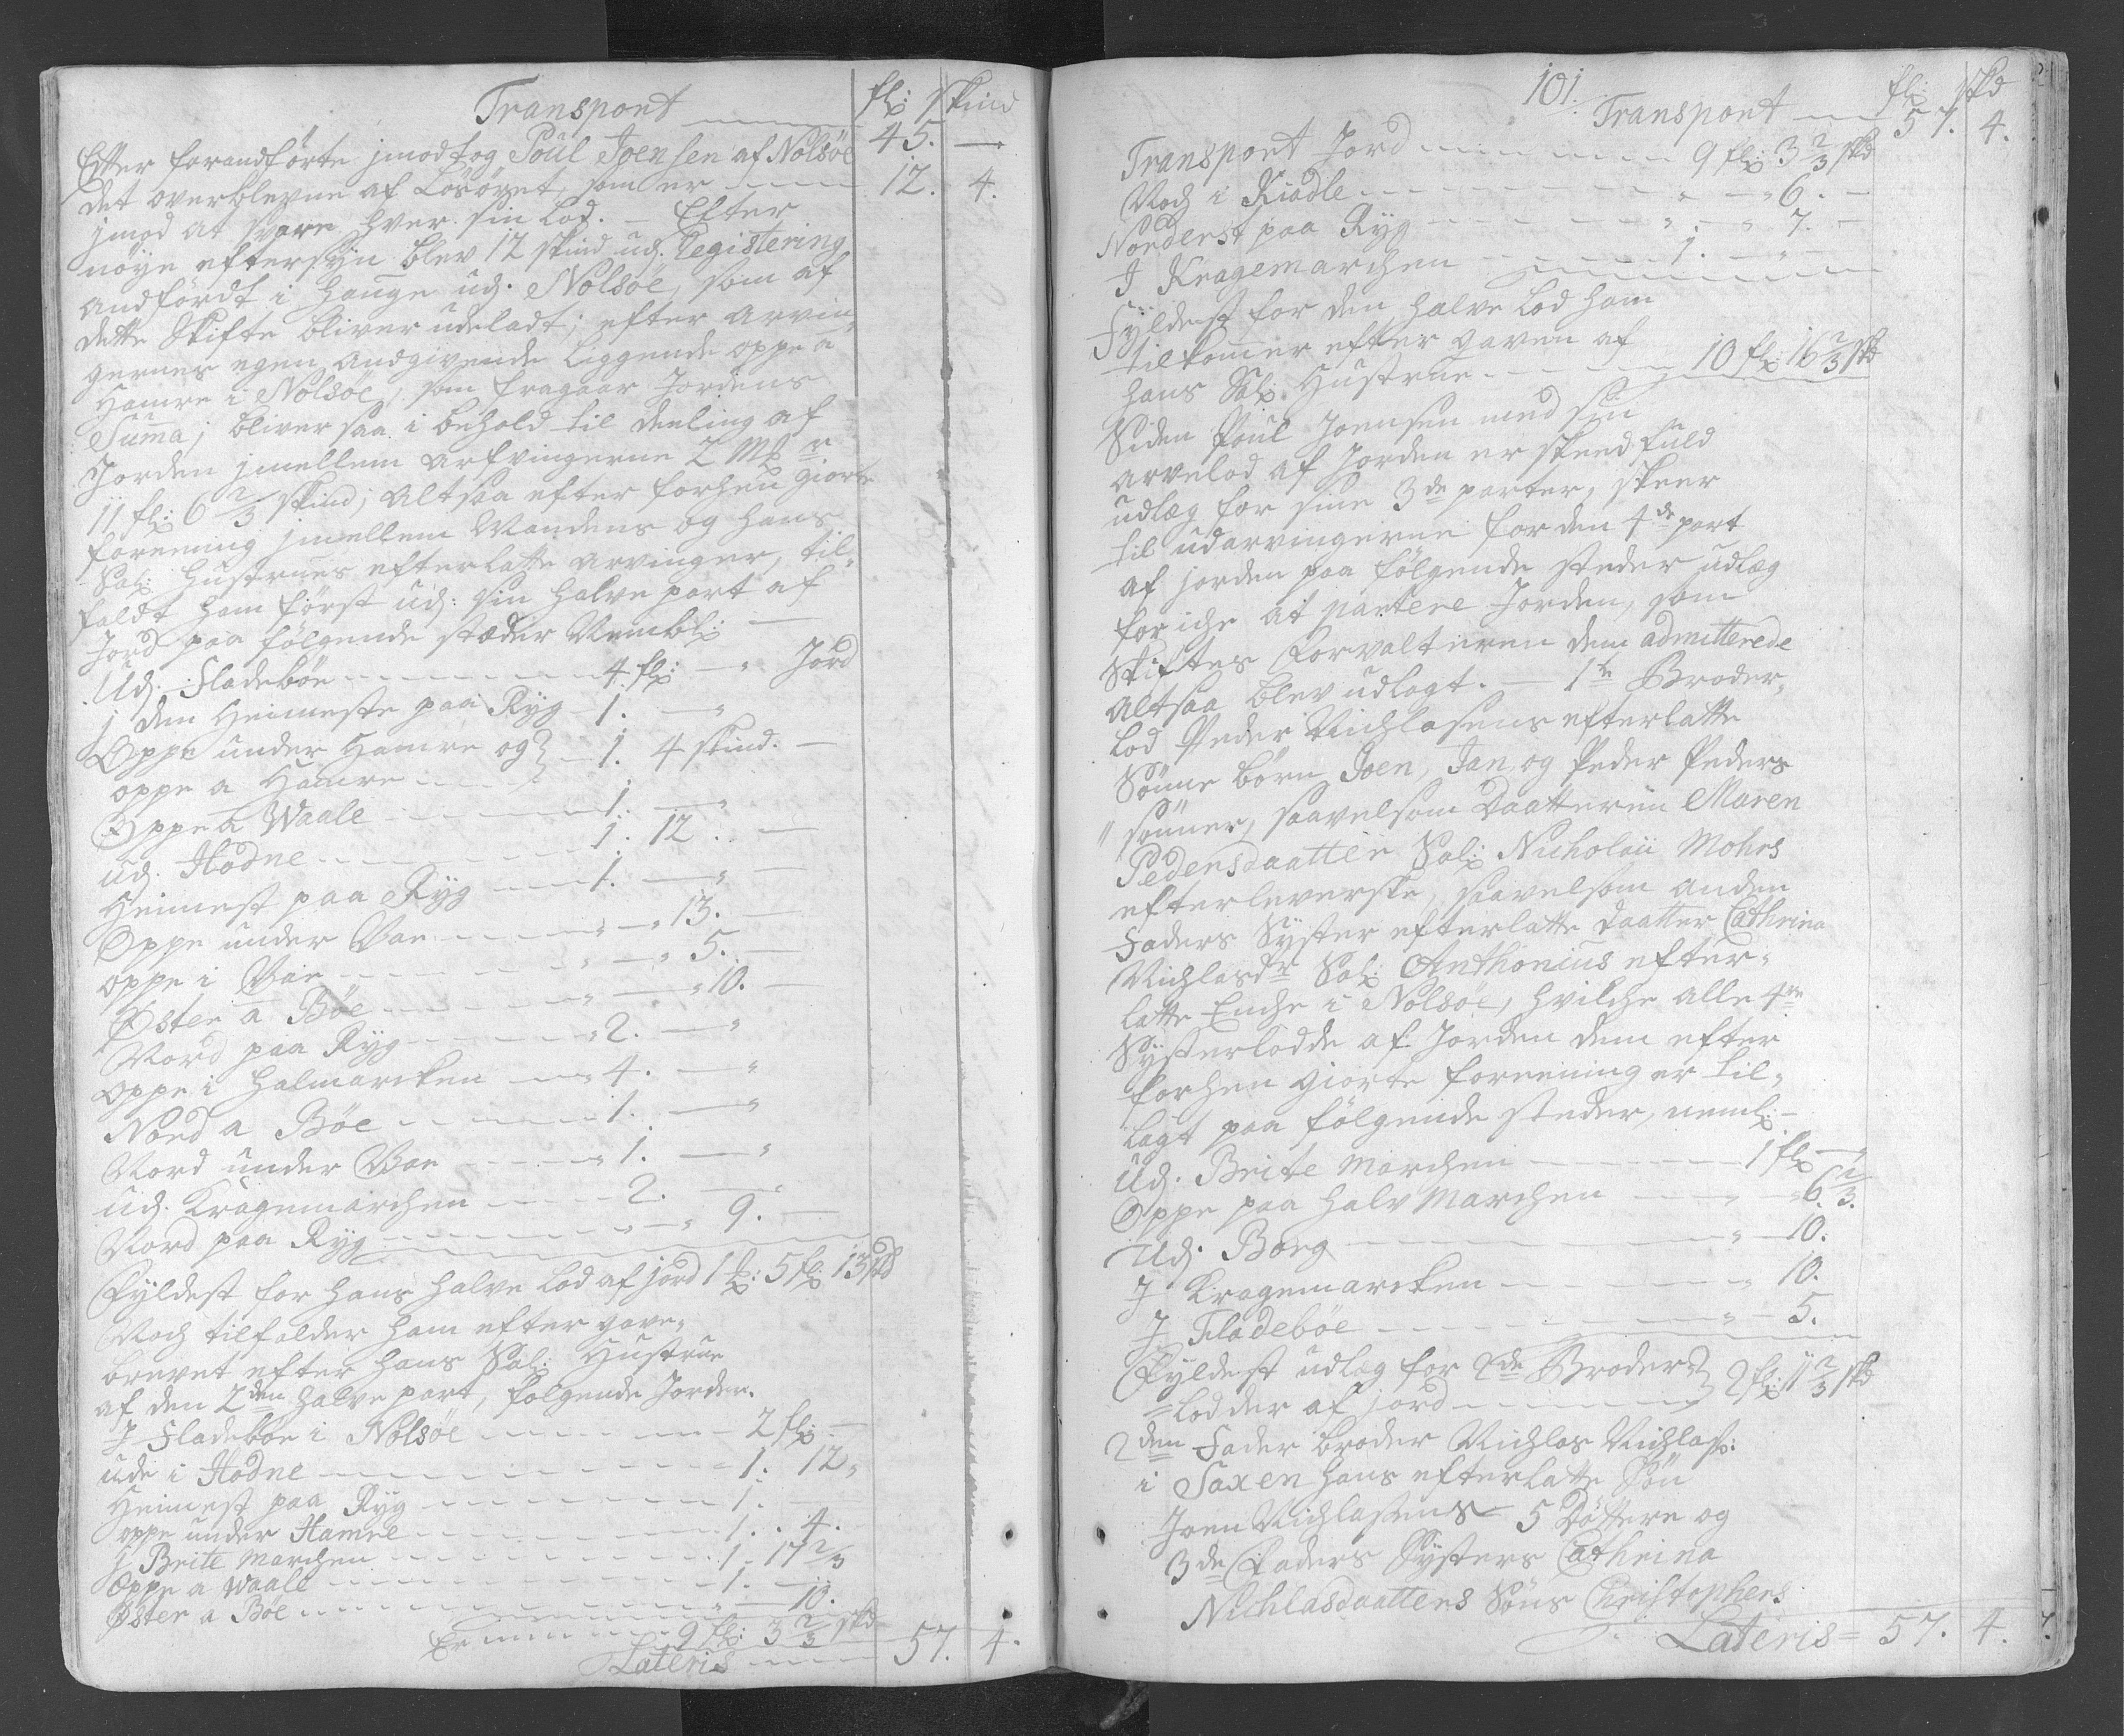 Transport fl: skind
Efter forandførte jmodtog Poul Joensen af Nolsöe 45. —
det overblevne af Lösöret, som er 12. 4.
jmod at svare hver sin Lod. — Efter
nöye eftersÿn blev 12 skind ud: Registering
andfördt i Hauge ud: Nolsöe, som af
dette Skifte bliver udeladt; efter Arvin¬
gernes egen andgivende liggende oppe a
Hamre i Nolsöe, som fragaar Jordens
Suma; bliver saa i behold til deeling af
Jorden jmellem Arfvingerne 2 Mk r
11 fl: 6 2/3 skind; Altsaa efter forhen giorte
foreening jmellem Mandens og hans
Sal: Hustrues efterlatte arvinger, til¬
faldt ham först ud: sin halve part af
Jord paa fölgende stæder Nembl: —
Ud: Fladeböe 4 fl: — " Jord
j den Heimeste paa Ryg 1. — "
Oppe under Hamre og } 1. 4 skind. —
oppe a Hamre
Oppe a Waale 1. — "
ud: Hodne 1. 12. —
Heimest paa Ryg 1. — " —
Oppe under Van " — " 13. —
oppe i Van " — " 5. —
Öster a Böe " — " 10. —
Nord paa Ryg " 2. — "
oppe i Halmarcken " 4. — "
Nord a Böe 1. — "
Nord under Van " 1. — "
ud: Kragemarchen 2. — "
Nord paa Ryg " — " 9. —
Fyldest for hans halve Lod af jord 1 : 5 fl: 13 skd
Noch tilfalder ham efter gave¬
brevet efter hans Sal: Hustrue
af den 2den halve part, fölgende Jorder.
J Fladeböe i Nolsöe 2 fl: —
ude i Hodne 1. 12 "
Heimest paa Ryg 1.
oppe under Hamre 1. 4.
J Brite Marchen 1. 17 2/3
Oppe a Waale 1. —
Öster a Böe " — 10.
Er 9 fl: 3 2/3 skd
Lateris 57. 4.
101.
Transport fl: skd 57. 4.
Transport Jord 9 fl: 3 2/3 skd
Noch i Kiadle " — " 6. —
Norderst paa Ryg " — " 7. —
J Kragemarchen 1. — " —
Fÿldest for den halve Lod ham
tilkomer efter gaven af
hans Sal: Hustrue 10 fl: 16 2/3 skd
Siden Poul Joensen med sin
arvelod af Jorden er skeed fuld
udlæg for sine 3de parter, skeer
til udarvingerne for den 4de part
af jorden paa fölgende steder udlæg
for iche at partere Jorden, som
Skiftes Forvalteren dem admitterede
Altsaa blev udlagt. — 1te Broder¬
Lod Peder Nichlasens efterlatte
Sönne börn Joen, Jan, og Peder Peders
" sönner, saavelsom Daatteren Maren
Pedersdaatter Sal: Nicholaii Mohrs
efterleverske, saavelsom anden
Faders Syster efterlatte Daatter Cathrina
Nichlasdr Sal: Anthonius efter¬
latte Enche i Nolsöe, hvilche alle 4re
Sÿsterlodde af Jorden dem efter
forhen giorte foreening er til¬
lagt paa fölgende steder, neml: —
Ud: Brite Marchen 1 fl: — "
Oppe paa Halv Marchen " — " 6 2/3.
Ud: Borg " — 10.
J Kragemarcken " 10.
J Fladeböe " — 5.
Fyldest udlæg for 2de Broder } 2 fl: 11 2/3 skd
= Lodder af jord
2den Fader broder Nichlas Nichlas:
i Saxen hans efterlatte Sön
Joen Nichlasens 5 Döttere og
3de Faders Sÿsters Cathrina
Nichlasdaatters Söns Christophers
Lateris = 57. 4.